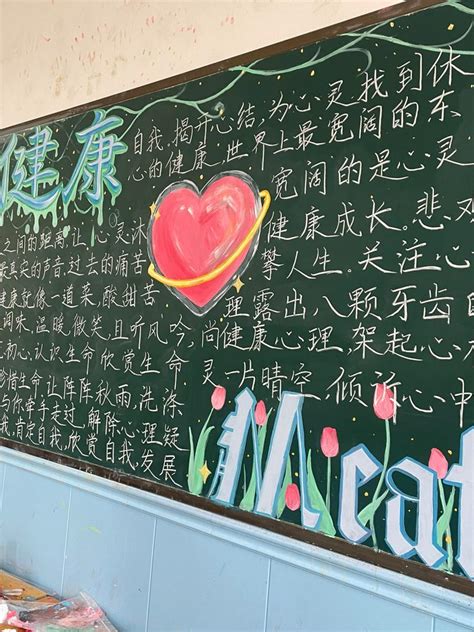 健康
自我,揭开心结,为心灵找到休
心的健康,世界上最宽阔的东
宽阔的是心灵
健康成长。悲观
攀人生。关注心
理露出八颗牙齿
尚健康心理,架起心
灵一片晴空,倾诉心中
之间的距离,让心灵沐
最真实的声音,过去的痛苦
健康就像一道菜,酸甜苦
调味,温暖,微笑,且听风吟,
初心,认识生命欣赏生命
珍惜生命让阵阵秋雨,洗涤
与你牵手走过,解除心理疑
我,肯定自我,欣赏自我,发展
Meat